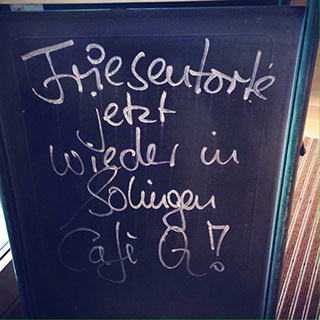 Friesentorte
jetzt
wieder in
Solingen
Café Q!